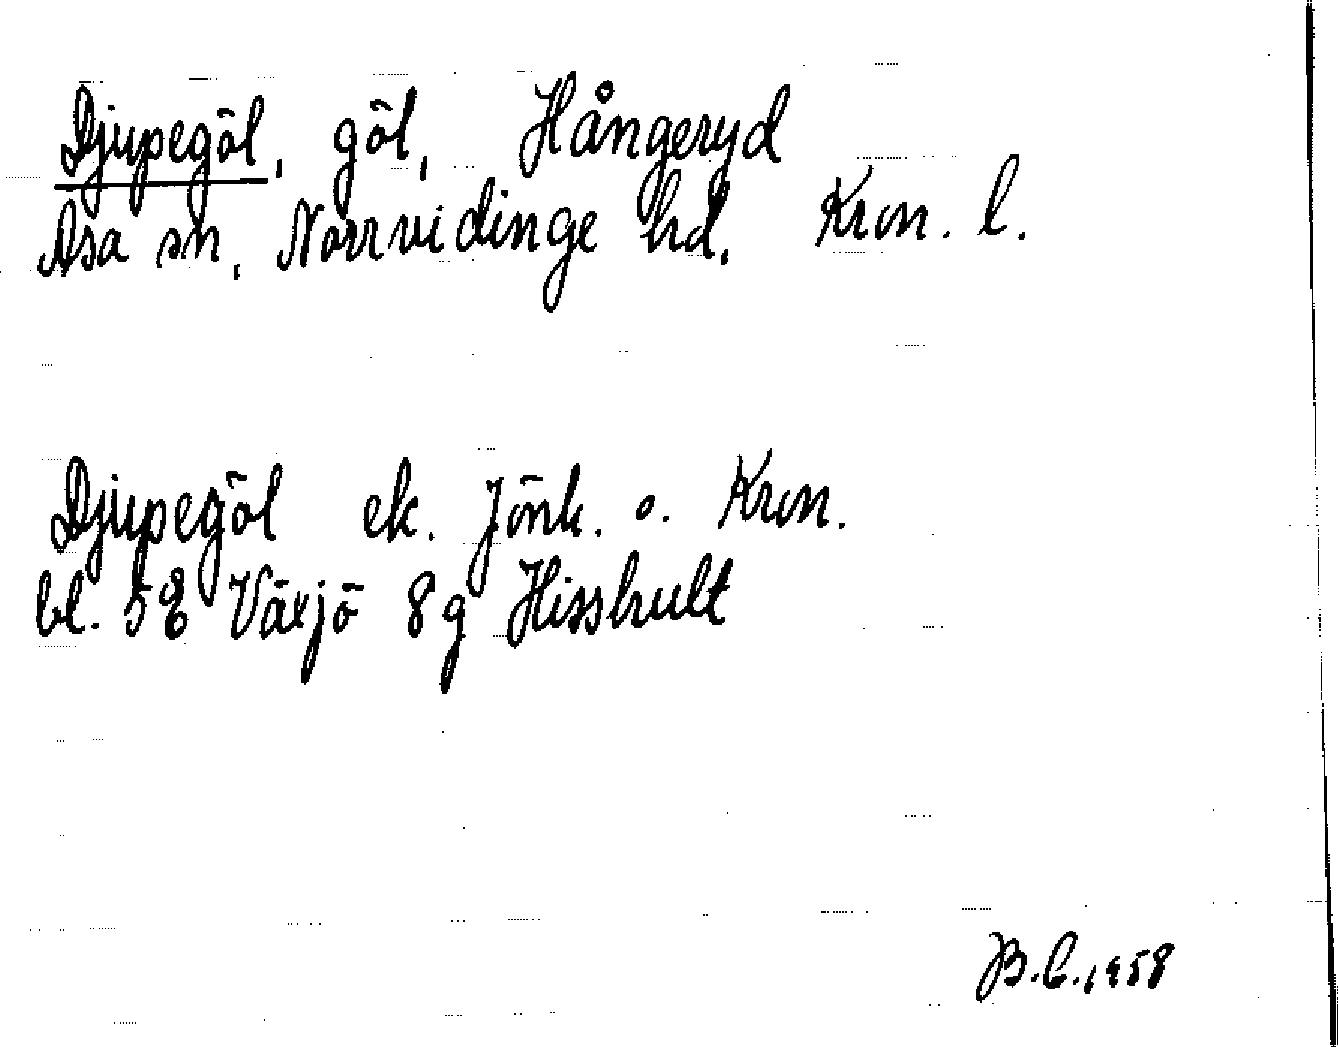 Djupegöl, göl, Hångeryd
Asa sn, Norrvidinge hd, Kron. l.
Djupegöl ek. Jönk. o. Kron.
bl. 58 Växjö 8g Hisshult
B.C. 1958